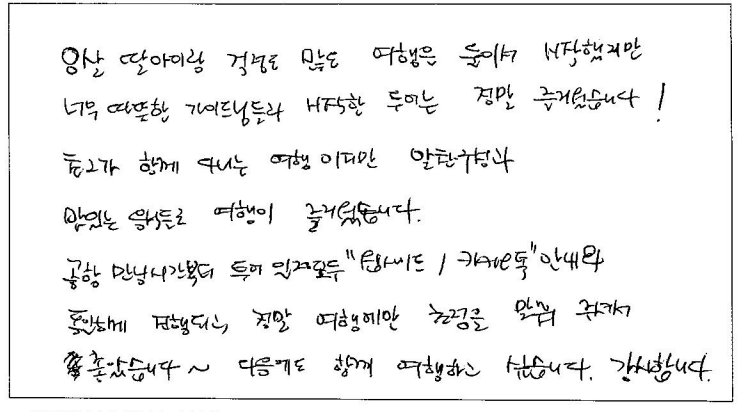 9살 딸아이랑 걱정도 많은 여행을 둘이서 시작했지만
너무 따뜻한 가이드님들과 시작한 투어는 정말 즐거웠습니다!
함께 다니는 여행이지만 알찬구성과
맛있는 음식들로 여행이 즐거웠습니다.
공항 만남시간부터 투어 일정모두 "웹사이트 / 카카오톡" 안내와
동일하게 진행되고, 정말 여행에만 초점을 맞춰 주셔서
좋았습니다~ 다음에도 함께 여행하고 싶습니다. 감사합니다.